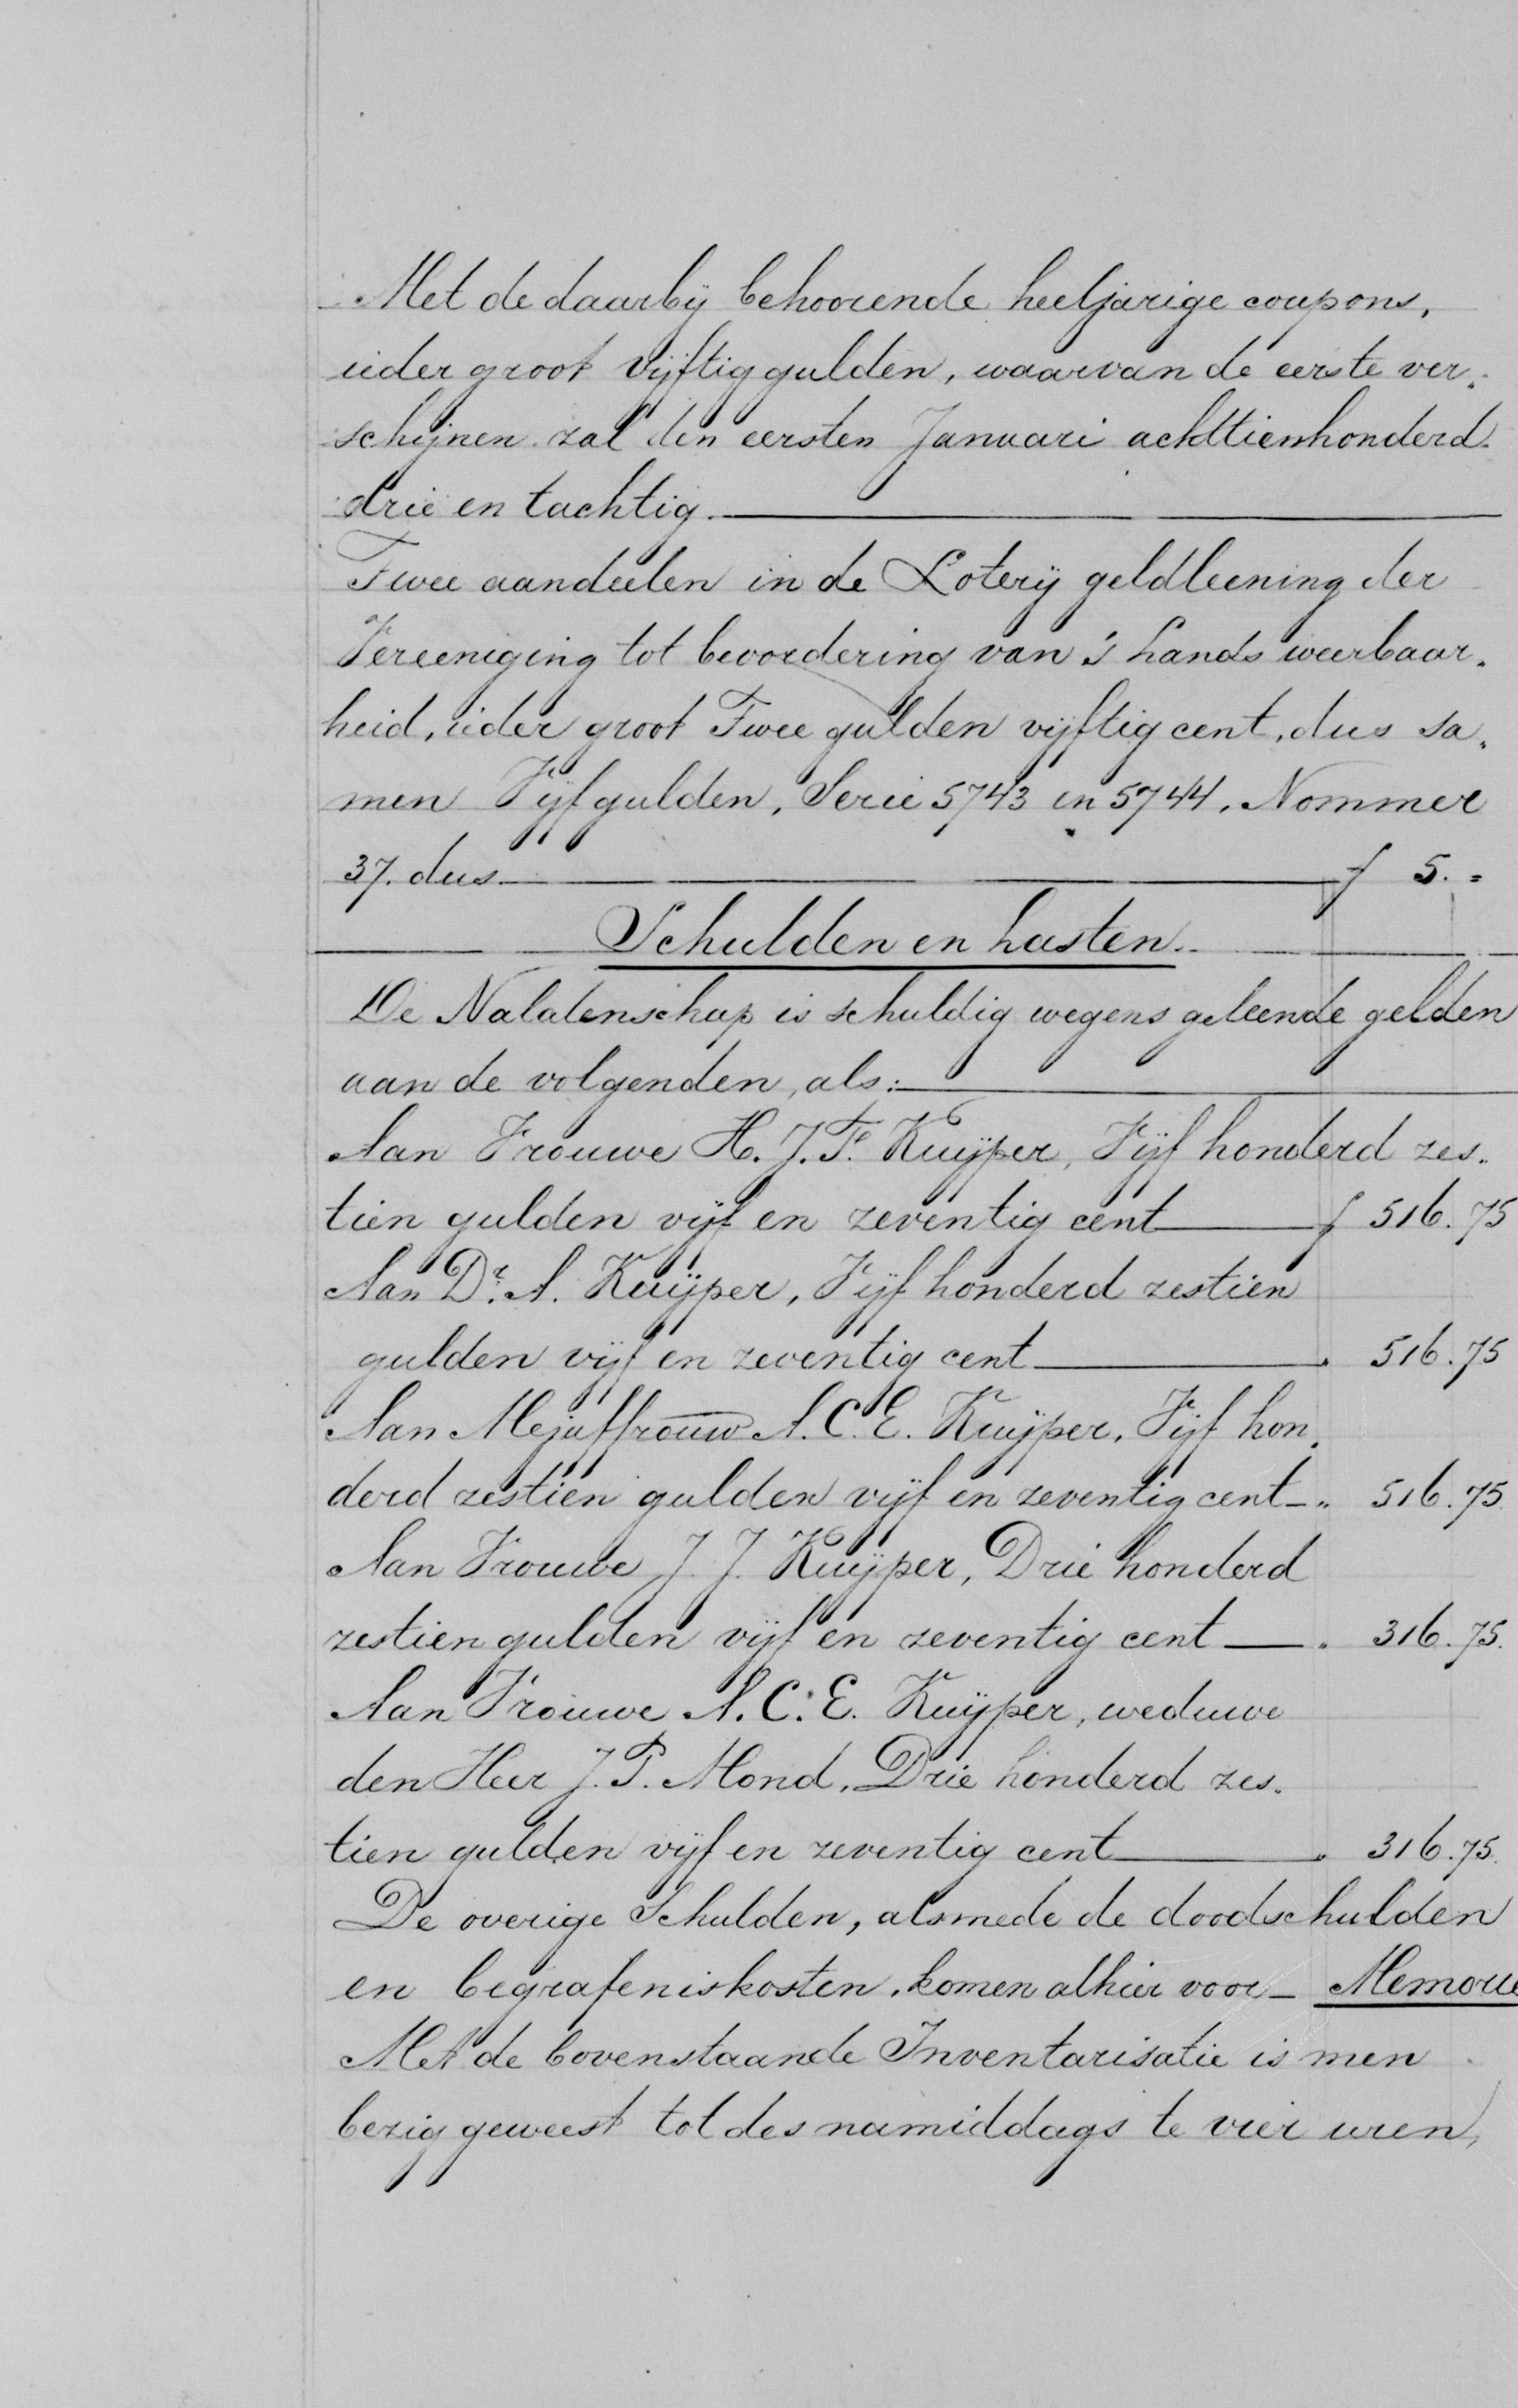 Met de daarbij behoorende heeljarige coupons,
ieder groot vijftig gulden, waarvan de eerste ver„
schijnen zal den eersten Januari achttienhonderd
drie en tachtig.
Twee aandeelen in de Loterij geldleening der
Vereeniging tot bevordering van 's Lands weerbaar„
heid, ieder groot Twee gulden vijftig cent, dus sa„
men Vijf gulden, Serie 5743 en 5744, Nommer
37. dus f 5.=
Schulden en lasten.
De Nalatenschap is schuldig wegens geleende gelden
aan de volgenden, als:
Aan Vrouwe H. J. F. Kuijper, Vijf honderd zes„
tien gulden vijf en zeventig cent f 516.75
Aan Dr. A. Kuijper, Vijf honderd zestien
gulden vijf en zeventig cent „ 516.75
Aan Mejuffrouw A. C. E. Kuijper, Vijf hon„
derd zestien gulden vijf en zeventig cent „ 516.75.
Aan Vrouwe J. J. Kuijper, Drie honderd
zestien gulden vijf en zeventig cent „ 316.75.
Aan Vrouwe A. C. E. Kuijper, weduwe
den Heer J. P. Mond, Drie honderd zes„
tien gulden vijf en zeventig cent „ 316.75.
De overige Schulden, alsmede de doodschulden
en begrafeniskosten, komen alhier voor Memorie
Met de bovenstaande Inventarisatie is men
bezig geweest tot des namiddags te vier uren,